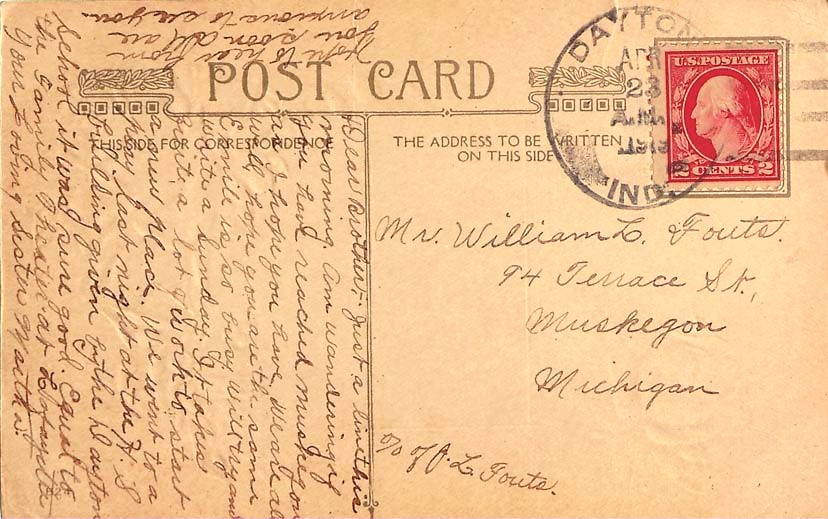 POST CARD
THIS SIDE FOR CORRESPONDENCE
THE ADDRESS TO BE WRITTEN
ON THIS SIDE
DAYTON
APR
23
A.M.
191
IND.
U.S. POSTAGE
2 CENTS 2
Dear Brother:- Just a line this
morning. Am wondering if
you have reached Muskegon
and I hope you have. We are all
well, hope you are the same
is so busy. Will try and
write a Sunday. It takes
quite a lot of work to start
a new place. We went to a
play last night at the H. S
building given by the Dayton
School it was sure good. Equal to
the Family Theater at Lafayette
Your Loving Sister Martha.
to hear from
you soon all are
anxious to see you
Mr. William L. Fouts.
94 Terrace St.,
Muskegon
Michigan
c/o of J. L. Fouts.